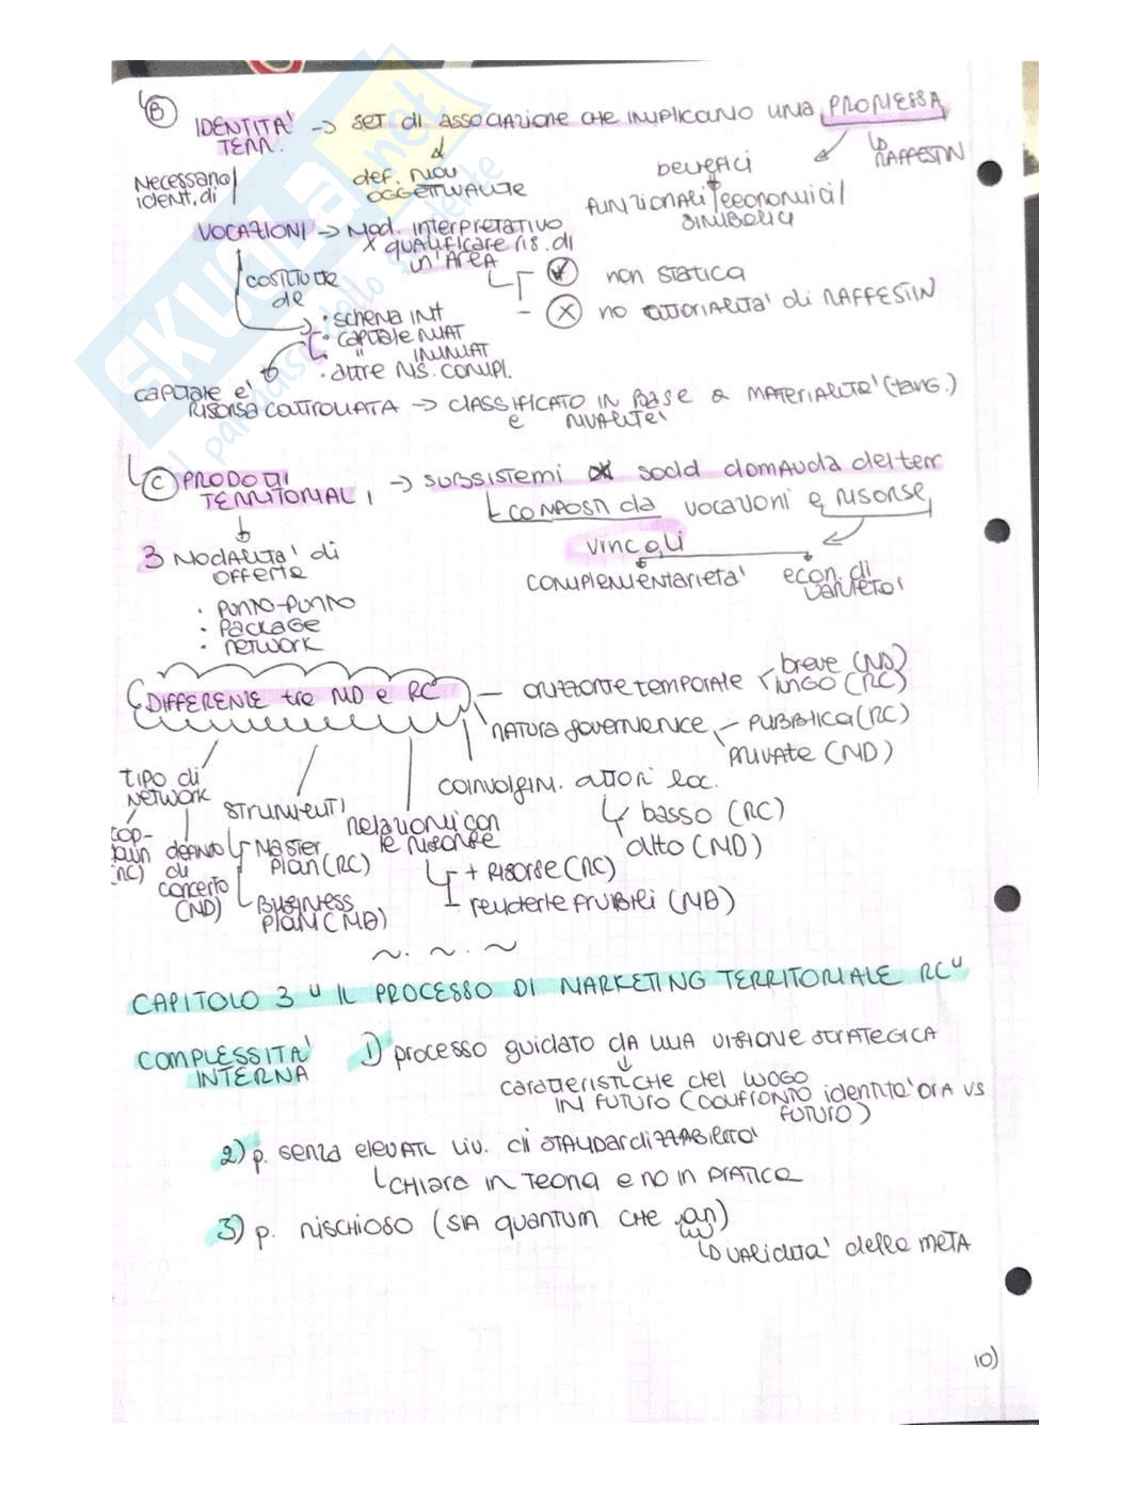 B IDENTITA' TERR. → SET di ASSOCIAZIONE CHE IMPLICANO UNA PROMESSA
RAFFESTIN
def. NON OGGETTIVANTE
benefici
FUNZIONALI economici
SIMBOLICI
Necessario
ident. di
VOCAZIONI → Mod. interpretativo
x qualificare ris. di
un' Area
non statica
no attorialità di RAFFESTIN
COSTITUITE
da
• schema INT
• capitale MAT
• " IMMAT
• altre RIS. COMPL.
CAPITALE è
RISORSA CONTROLLATA → CLASSIFICATO IN BASE a MATERIALITA' (tang.)
e RIVALITA'
C PRODOTTI
TERRITORIALI → SUBSISTEMI sodd domanda del terr
COMPOSTI da vocazioni e risorse
vincoli
COMPLEMENTARIETA'
econ. di
varieta'
3 MODALITA' di
OFFERTA
• PUNTO-PUNTO
• PACKAGE
• NETWORK
DIFFERENZE tra MD e RC
orizzonte temporale breve (MD)
lungo (RC)
NATURA governance PUBBLICA (RC)
PRIVATA (MD)
coinvolgim. attori loc.
basso (RC)
alto (MD)
TIPO di
NETWORK
TOP-
(RC)
definito
di
concerto
(MD)
STRUMENTI
MASTER
PLAN (RC)
BUSINESS
PLAN (MD)
RELAZIONI con
le RISORSE
+ RISORSE (RC)
renderle FRUIBILI (MD)
~ . ~ . ~
CAPITOLO 3 " IL PROCESSO DI MARKETING TERRITORIALE RC"
COMPLESSITA'
INTERNA
1) processo guidato da una VISIONE STRATEGICA
caratteristiche del LUOGO
IN FUTURO (CONFRONTO identità ORA VS
FUTURO)
2) p. senza elevati liv. di STANDARDIZZABILITA'
CHIARO in Teoria e no in PRATICA
3) p. RISCHIOSO (SIA quantum CHE an)
VALIDITA' della META
10)
SKUOLA.net
il paradiso dello studente